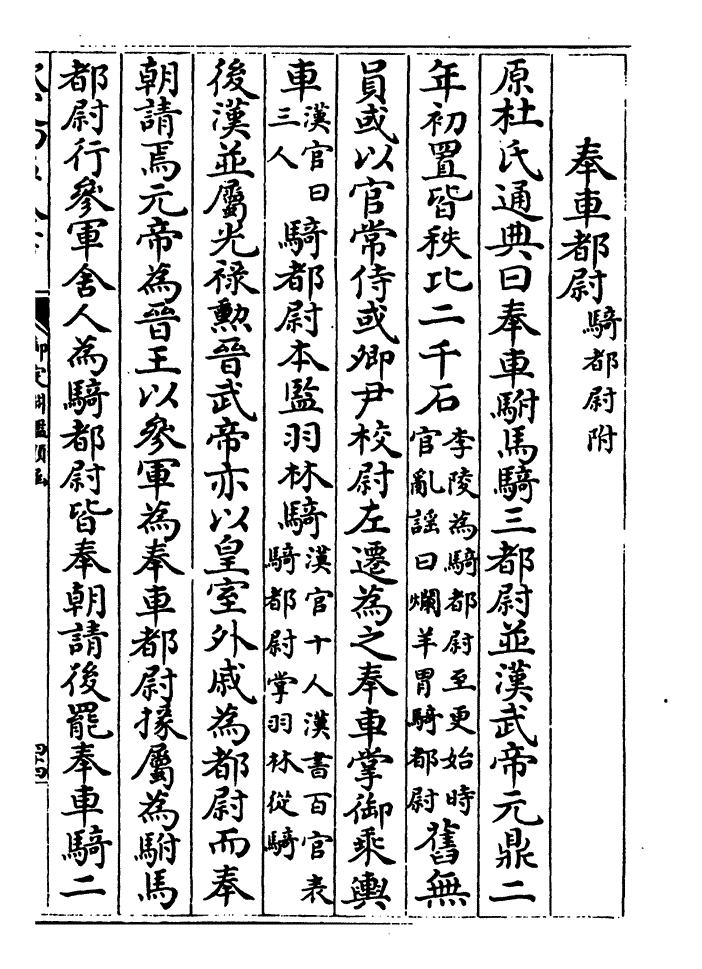 奉車都尉騎都尉附
原杜氏通典曰奉車駙馬騎三都尉並漢武帝元鼎二
年初置皆秩比二千石李陵為騎都尉至更始時官亂謠曰爛羊胃騎都尉舊無
員或以官常侍或卿尹校尉左遷為之奉車掌御乘輿
車漢官曰三人騎都尉本監羽林騎漢官十人漢書百官表騎都尉掌羽林從騎
後漢並屬光祿勲晉武帝亦以皇室外戚為都尉而奉
朝請焉元帝為晉王以參軍為奉車都尉掾屬為駙馬
都尉行參軍舍人為騎都尉皆奉朝請後罷奉車騎二
御定淵鑑類函